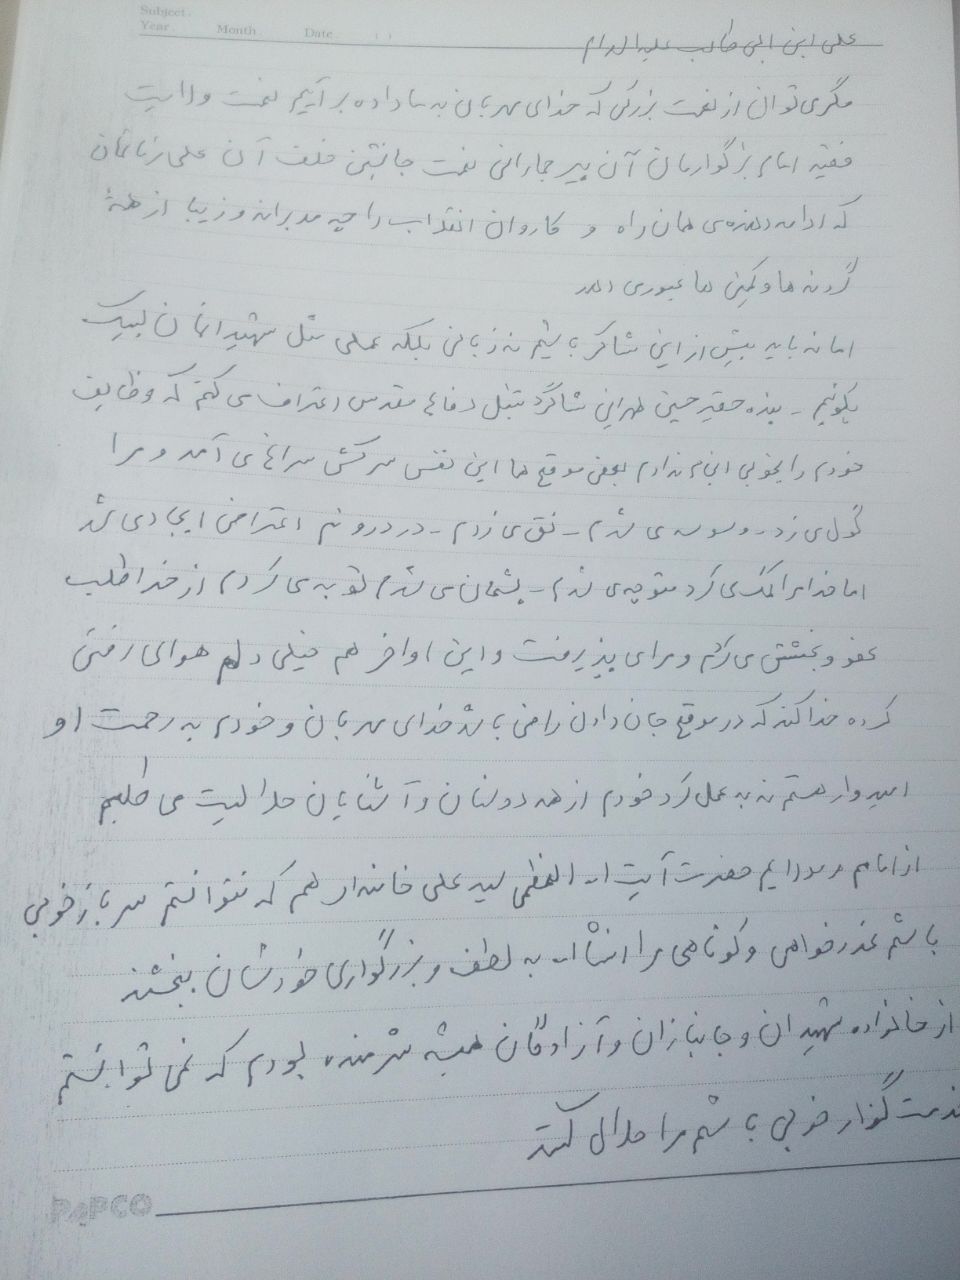 Subject.
Year. Month. Date. ( )
علی ابن ابی طالب علیه السلام
مگر می توان از نعمت بزرگی که خدای مهربان به ما داده بر آییم نعمت ولایت
فقیه امام بزرگوارمان آن پیر جمارانی نعمت جانشین خلف آن علی زمانمان
که ادامه دهنده ی همان راه و کاروان انقلاب را چه مدبرانه و زیبا از همه
گردنه ها و کمین ها عبور می دهد
اما نه باید بیش از این شاکر باشیم نه زبانی بلکه عملی مثل شهیدانمان لبیک
بگوئیم - بنده حقیر حسین طهرانی شاگرد تنبل دفاع مقدس اعتراف می کنم که وظایف
خودم را بخوبی انجام ندادم بعضی موقع ها این نفس سرکش سراغم می آمد و مرا
گول می زد - وسوسه می شدم - نق می زدم - در درونم اعتراض ایجاد می شد
اما خدا مرا کمک می کرد متوجه می شدم - پشمان می شدم توبه می کردم از خدا طلب
عفو و بخشش می کردم و مرا می پذیرفت و این اواخر هم خیلی دلم هوای رفتن
کرده خدا کند که در موقع جان دادن راضی باشد خدای مهربان و خودم به رحمت او
امیدوار هستم نه به عمل کرد خودم از همه دوستان و آشنایان حلالیت می طلبم
از امام و مولایم حضرت آیت ا... العظمی سید علی خامنه ای هم که نتوانستم سرباز خوبی
باشم عذر خواهی و کوتاهی مرا انشاا... به لطف و بزرگواری خودشان ببخشند
از خانواده شهیدان و جانبازان و آزادگان همیشه شرمنده بودم که نمی توانستم
خدمت گزار خوبی باشم مرا حلال کنند
PAPCO